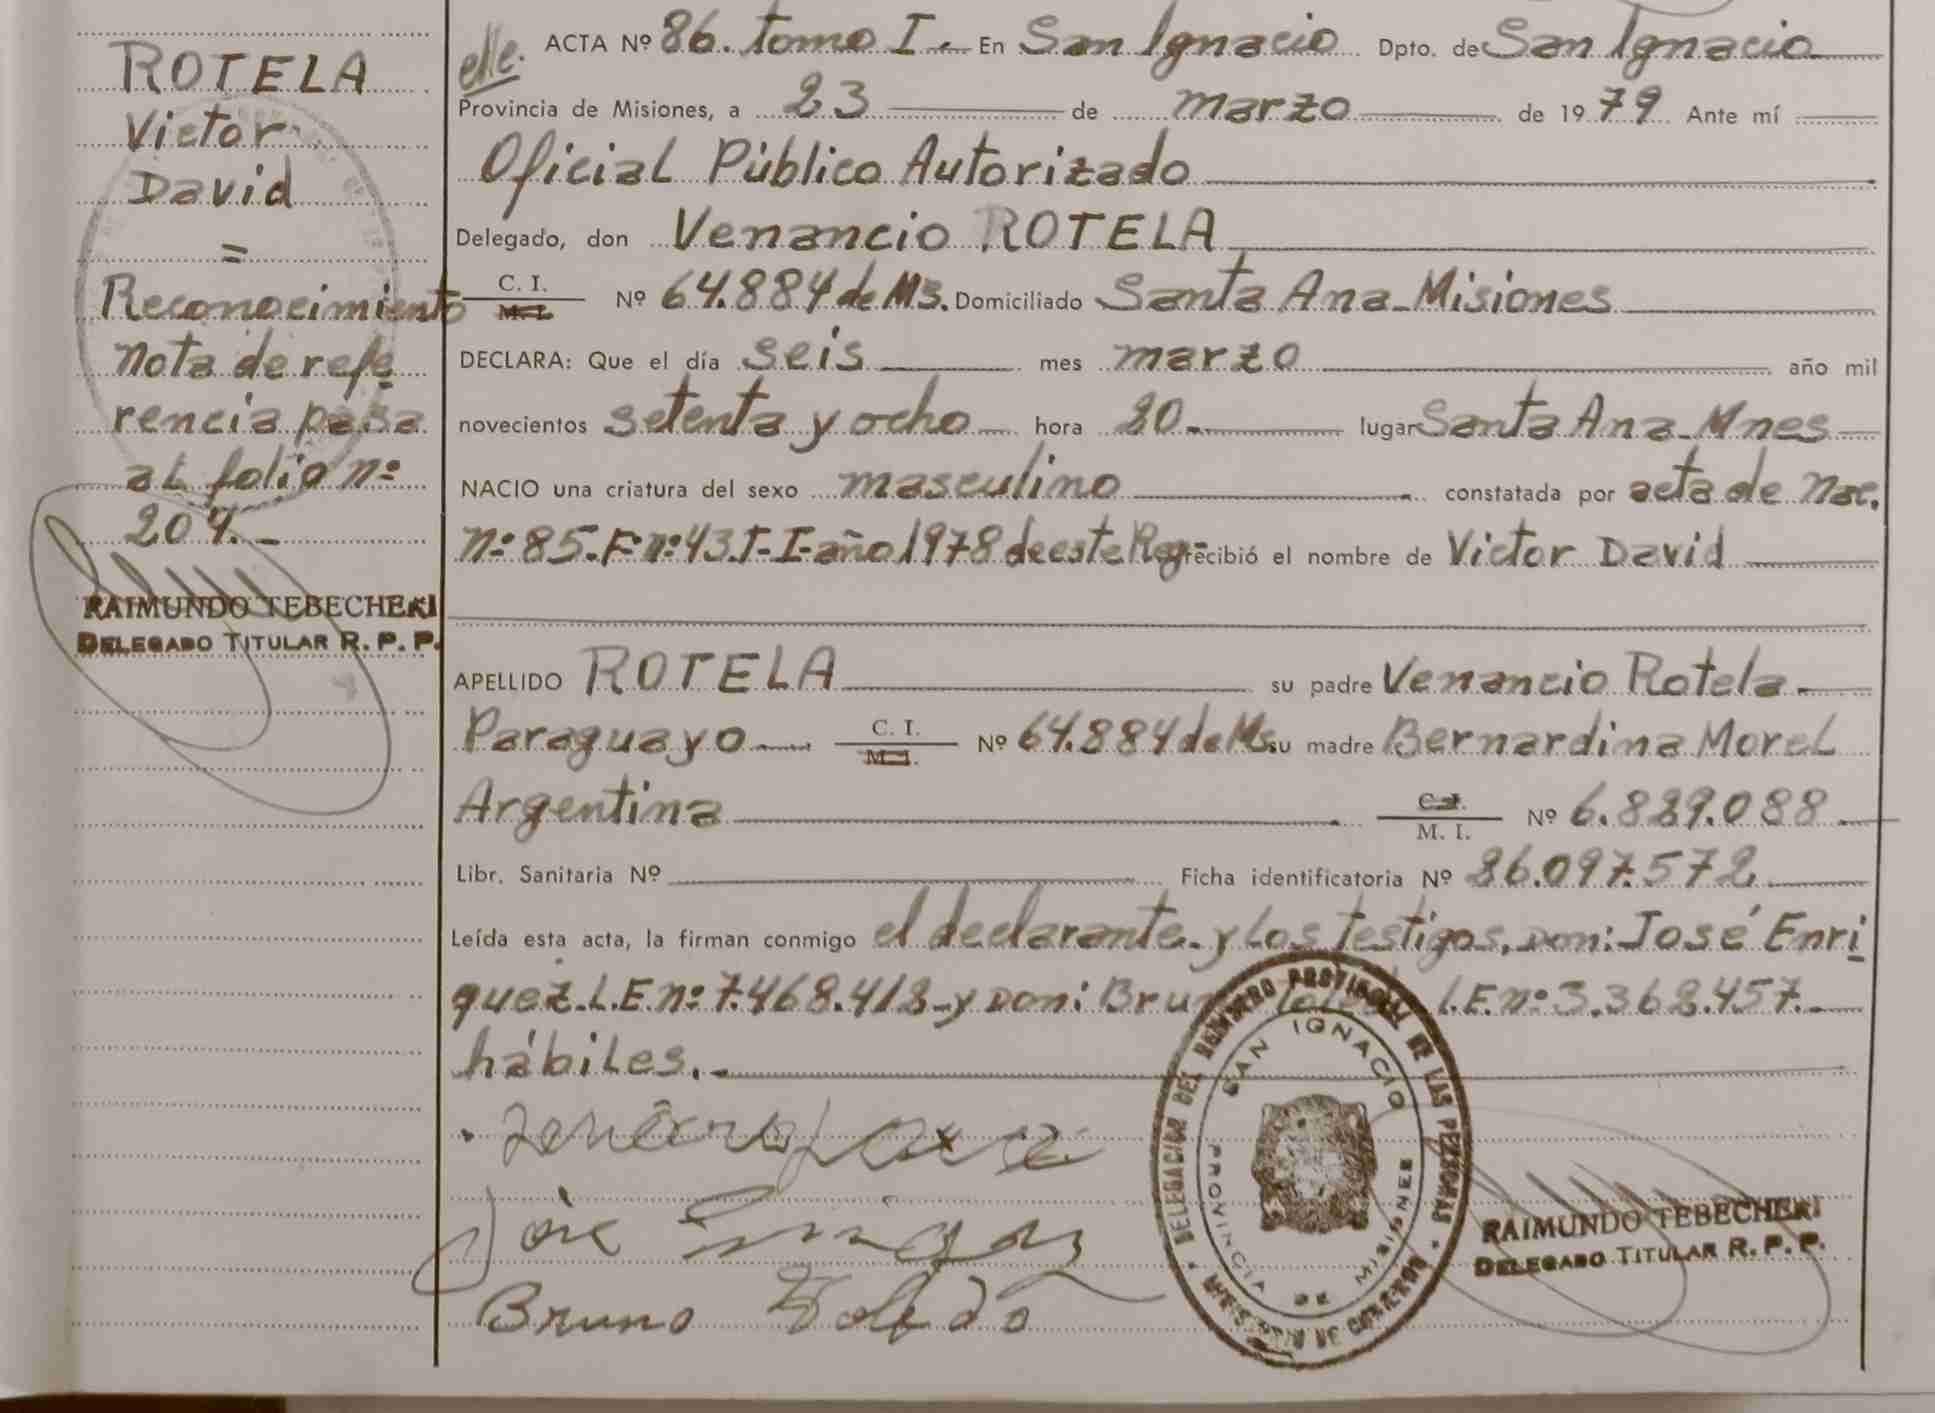 ROTELA
Victor
David
=
Reconocimiento
nota de refe
rencia pasa
al folio nº
204.-
RAIMUNDO TEBECHERI
DELEGADO TITULAR R. P. P.
ACTA Nº 86. tomo I.- En San Ignacio Dpto. de San Ignacio
Provincia de Misiones, a 23 de marzo de 1979 Ante mí
Oficial Público Autorizado
Delegado, don Venancio ROTELA
C. I.
M. I. Nº 64.884 de Ms. Domiciliado Santa Ana-Misiones
DECLARA: Que el día seis mes marzo año mil
novecientos setenta y ocho hora 20.- lugar Santa Ana-Mnes
NACIO una criatura del sexo masculino constatada por acta de nac.
nº 85-Fº nº 43.T-I-año 1978 de este Reg- recibió el nombre de Victor David
APELLIDO ROTELA su padre Venancio Rotela.-
Paraguayo C. I.
M. I. Nº 64.884 de Ms. su madre Bernardina Morel
Argentina C. I.
M. I. Nº 6.829.088
Libr. Sanitaria Nº Ficha identificatoria Nº 26.097.572
Leída esta acta, la firman conmigo el declarante.-y Los testigos, Don: José Enri
quez.L.E nº 7.468.412-y Don: Bruno Toledo L.E.nº 3.362.457.-
hábiles.-
José Enriquez
Bruno Toledo
DELEGACION DEL REGISTRO PROVINCIAL DE LAS PERSONAS
SAN IGNACIO
PROVINCIA DE MISIONES
MINISTERIO DE GOBIERNO
RAIMUNDO TEBECHERI
DELEGADO TITULAR R. P. P.